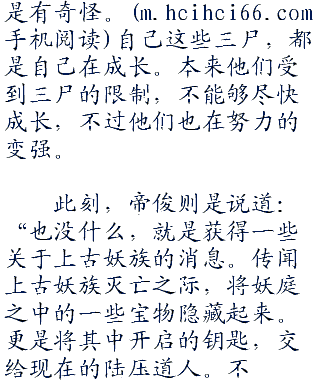 是有奇怪。(m.hcihci66.com
手机阅读)自己这些三尸，都
是自己在成长。本来他们受
到三尸的限制，不能够尽快
成长，不过他们也在努力的
变强。
此刻，帝俊则是说道：
“也没什么，就是获得一些
关于上古妖族的消息。传闻
上古妖族灭亡之际，将妖庭
之中的一些宝物隐藏起来。
更是将其中开启的钥匙，交
给现在的陆压道人。不